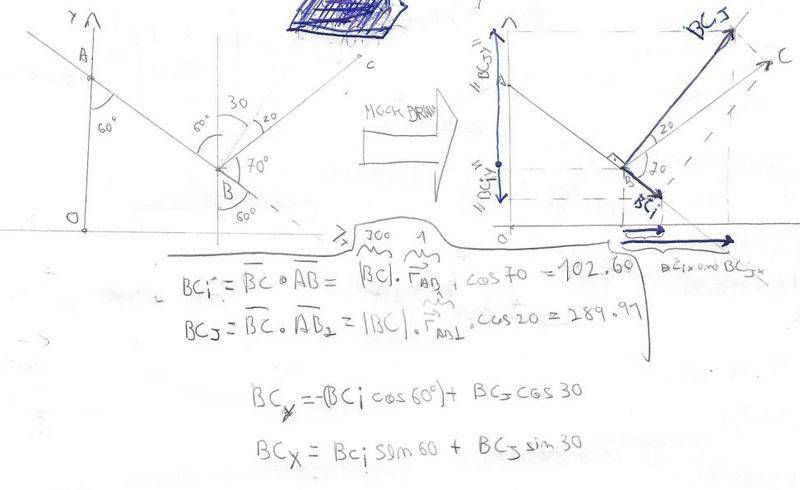 Y
A
60°
O
60°
30
20
C
70°
B
60°
BCJ
C
"BCJY"
A
20
70
B
BCi
"BCiY"
O
BCix and BCJx
300
1
BCi = BC • AB = |BC| . rAB . cos 70 = 102.60
BCJ = BC . AB⊥ = |BC| . rAB⊥ . cos 20 = 289.97
BCy = -(BCi cos 60°) + BCJ cos 30
BCX = BCi sin 60 + BCJ sin 30